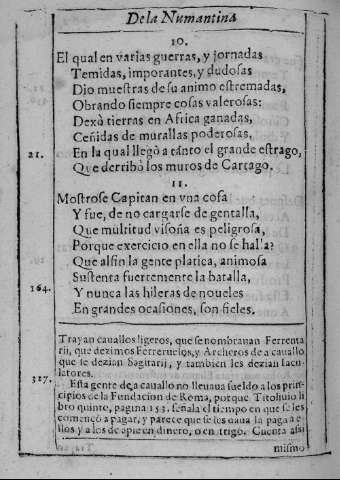 De la Numantina
10.
El qual en varias guerras, y jornadas
Temidas, imporantes, y dudosas
Dio muestras de su animo estremadas,
Obrando siempre cosas valerosas:
Dexò tierras en Africa ganadas,
Ceñidas de murallas poderosas,
21. En la qual llegò a tanto el grande estrago,
Que derribò los muros de Cartago.
11.
Mostrose Capitan en vna cosa
Y fue, de no cargarse de gentalla,
Que multitud visoña es peligrosa,
Porque exercicio en ella no se halla:
Que alfin la gente platica, animosa
Sustenta fuertemente la batalla,
164. Y nunca las hileras de noueles
En grandes ocasiones, son fieles.
Trayan cauallos ligeros, que se nombrauan Ferrenta
rij, que dezimos Ferreruelos, y Archeros de a cauallo
que se dezian Sagitarij, y tambien les dezian Iacu
latores.
327. Esta gente de a cauallo no lleuaua sueldo a los prin-
cipios de la Fundacion de Roma, porque Titoliuio li
bro quinto, pagina 153. señala el tiempo en que se les
començò a pagar, y parece que se les daua la paga a e-
llos y a los de apie en dinero, o en trigo. Cuenta assi
mismo